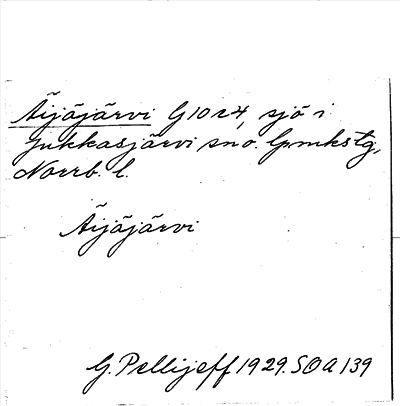 Äijäjärvi G10 r4, sjö i
Jukkasjärvi sn o. lpmkstg,
Norrb. l.
Äijäjärvi
G. Pellijeff 1929. SOA 139